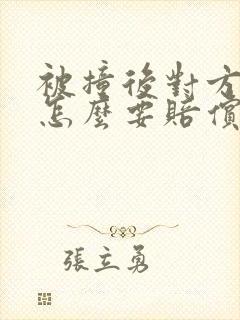 被撞後對方
怎麼要賠償
張立勇